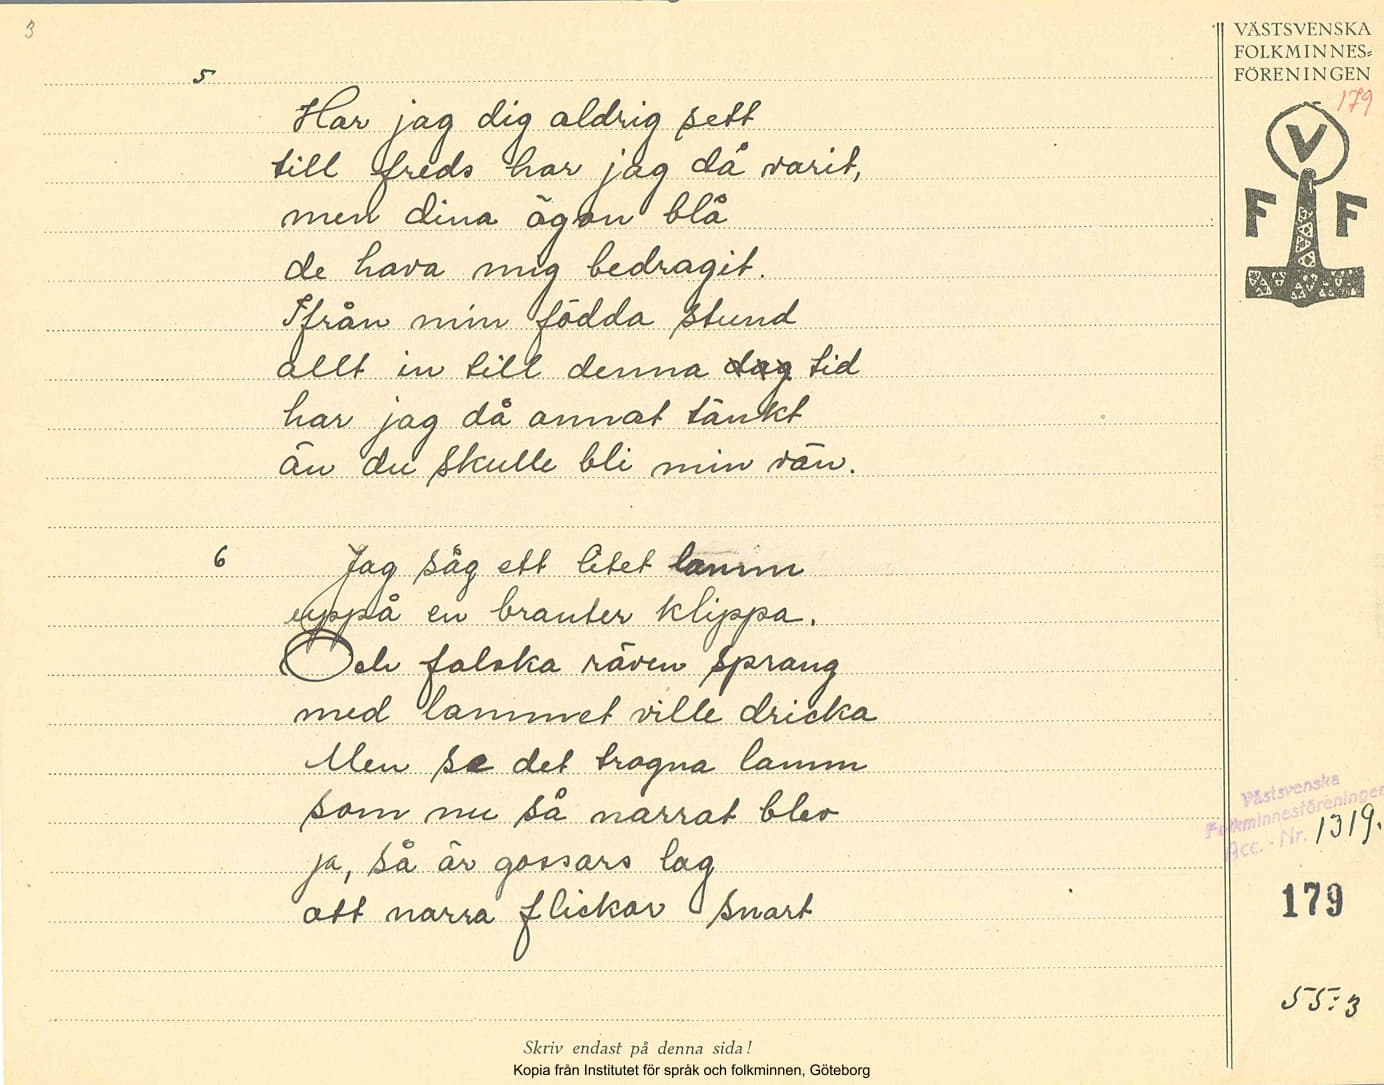 3
VÄSTSVENSKA
FOLKMINNES=
FÖRENINGEN
179
V
F F
5
Har jag dig aldrig sett
till freds har jag då varit,
men dina ögon blå
de hava mig bedragit.
Ifrån min födda stund
allt in till denna dag tid
har jag då annat tänkt
än du skulle bli min vän.
6
Jag såg ett litet lamm
uppå en branter klippa.
Och falska räven sprang
med lammet ville dricka
Men se det trogna lamm
som nu så narrat blev
ja, så är gossars lag
att narra flickor snart
Västsvenska
Folkminnesföreningen
Acc. - Nr. 1319.
179
55:3
Skriv endast på denna sida!
Kopia från Institutet för språk och folkminnen, Göteborg